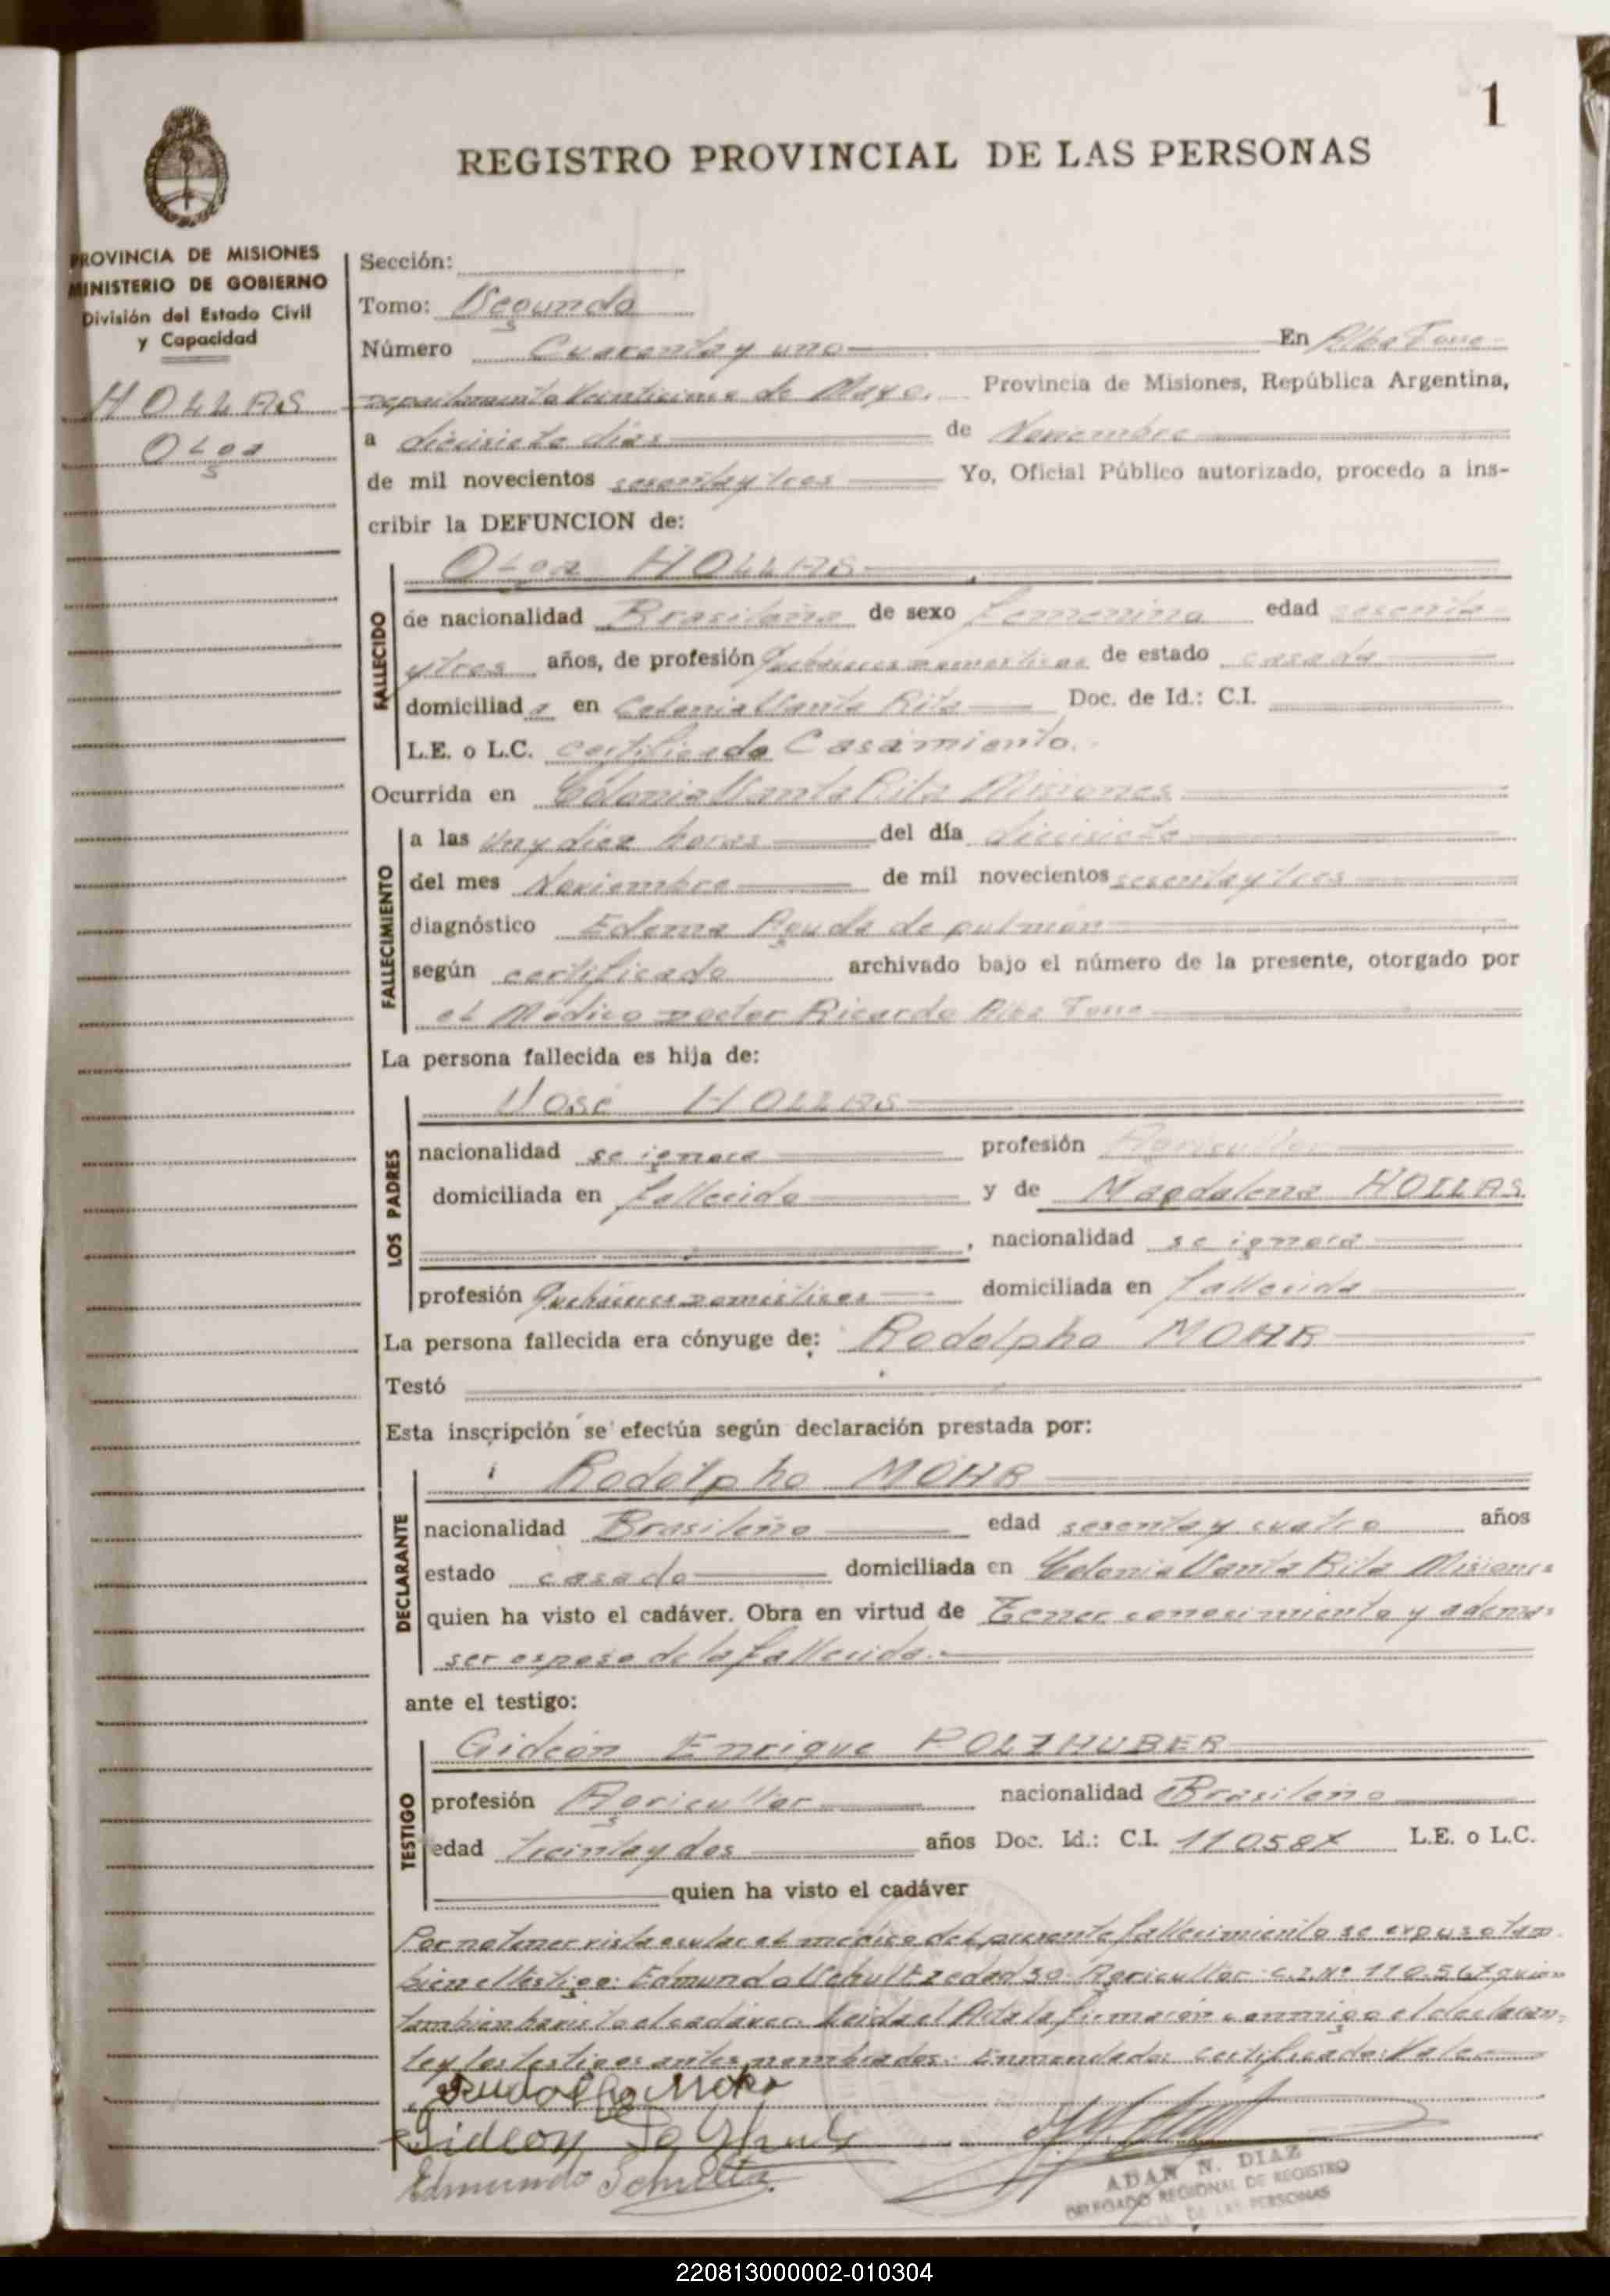 1
REGISTRO PROVINCIAL DE LAS PERSONAS
PROVINCIA DE MISIONES
MINISTERIO DE GOBIERNO
División del Estado Civil
y Capacidad
HOLLAS
Olga
Sección:
Tomo: Segundo
Número Cuarenta y uno En Alba Posse
departamento Veinticinco de Mayo. Provincia de Misiones, República Argentina,
a diecisiete días de Noviembre
de mil novecientos sesenta y tres Yo, Oficial Público autorizado, procedo a ins-
cribir la DEFUNCION de:
Olga HOLLAS
FALLECIDO
de nacionalidad Brasileña de sexo femenino edad sesenta
y tres años, de profesión Quehaceres domesticos de estado casada
domiciliada en Colonia Santa Rita Doc. de Id.: C.I.
L.E. o L.C. certificado Casamiento.
Ocurrida en Colonia Santa Rita Misiones
FALLECIMIENTO
a las una y diez horas del día diecisiete
del mes Noviembre de mil novecientos sesenta y tres
diagnóstico Edema Agudo de pulmón
según certificado archivado bajo el número de la presente, otorgado por
el Médico doctor Ricardo Alba Posse
La persona fallecida es hija de:
José HOLLAS
LOS PADRES
nacionalidad se ignora profesión Agricultor
domiciliada en fallecido y de Magdalena HOLLAS
, nacionalidad se ignora
profesión Quehaceres domésticos domiciliada en fallecida
La persona fallecida era cónyuge de: Rodolpho MOHR
Testó
Esta inscripción se efectúa según declaración prestada por:
Rodolpho MOHR
DECLARANTE
nacionalidad Brasileño edad sesenta y cuatro años
estado casado domiciliada en Colonia Santa Rita Misiones
quien ha visto el cadáver. Obra en virtud de Tener conocimiento y ademas
ser esposo de la fallecida.
ante el testigo:
Gideón Enrique POLZHUBER
TESTIGO
profesión Agricultor nacionalidad Brasileño
edad treinta y dos años Doc. Id.: C.I. 110.587 L.E. o L.C.
quien ha visto el cadáver
Por no tener vista ocular el médico del presente fallecimiento se expuso tam-
bien el testigo: Edmundo Schultz edad 30 Agricultor C.I. Nº 110.567 quien
tambien ha visto el cadáver. Leida el Acta la firmarón conmigo el declaran-
te y los testigos antes nombrados. Enmendado: certificado: Vale
Rudolfo Mohr
Gideon Polzhub
Edmundo Schultz
ADAN N. DIAZ
DELEGADO REGIONAL DE REGISTRO
DE LAS PERSONAS
220813000002-010304